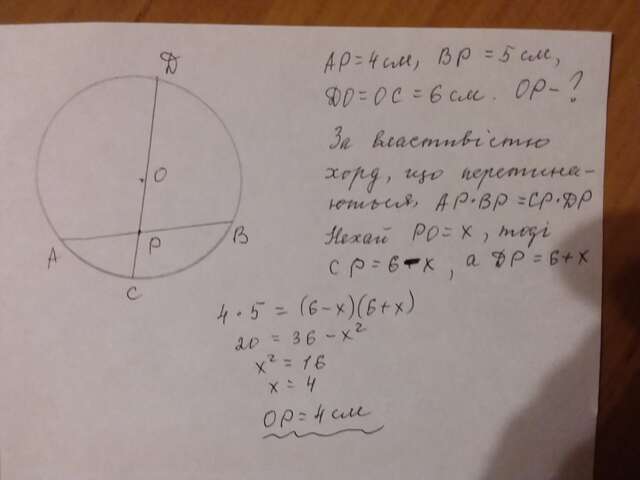 D
O
A
P
B
C
AP=4 см, BP = 5 см,
DO=OC=6 см. OP-?
За властивістю
хорд, що перетина-
ються, AP·BP=CP·DP
Нехай PO=x, тоді
CP=6-x, а DP=6+x
4·5 = (6-x)(6+x)
20 = 36-x²
x² = 16
x = 4
OP=4 см